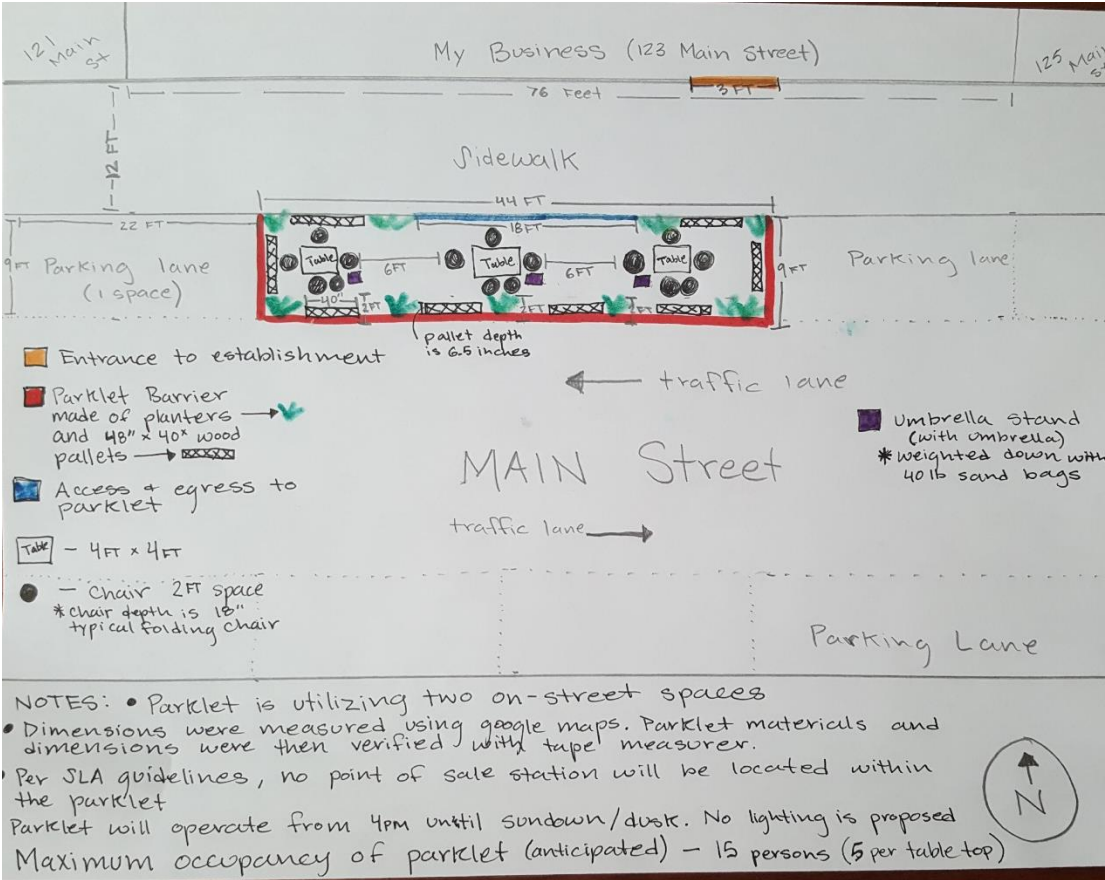 121 Main St
My Business (123 Main Street)
125 Main St
76 Feet
3 FT
12 FT
Sidewalk
44 FT
22 FT
18FT
9FT
Parking lane
(1 space)
Table
6FT
Table
6FT
Table
9FT
Parking lane
40"
2FT
2FT
2FT
pallet depth
is 6.5 inches
Entrance to establishment
traffic lane
Parklet Barrier
made of planters
and 48" x 40" wood
pallets
Umbrella stand
(with umbrella)
*weighted down with
40 lb sand bags
MAIN Street
Access & egress to
parklet
traffic lane
Table - 4FT x 4FT
- Chair 2FT space
*chair depth is 18"
typical folding chair
Parking Lane
NOTES: • Parklet is utilizing two on-street spaces
• Dimensions were measured using google maps. Parklet materials and
dimensions were then verified with tape measurer.
• Per SLA guidelines, no point of sale station will be located within
the parklet
Parklet will operate from 4pm until sundown/dusk. No lighting is proposed
Maximum occupancy of parklet (anticipated) - 15 persons (5 per table top)
N